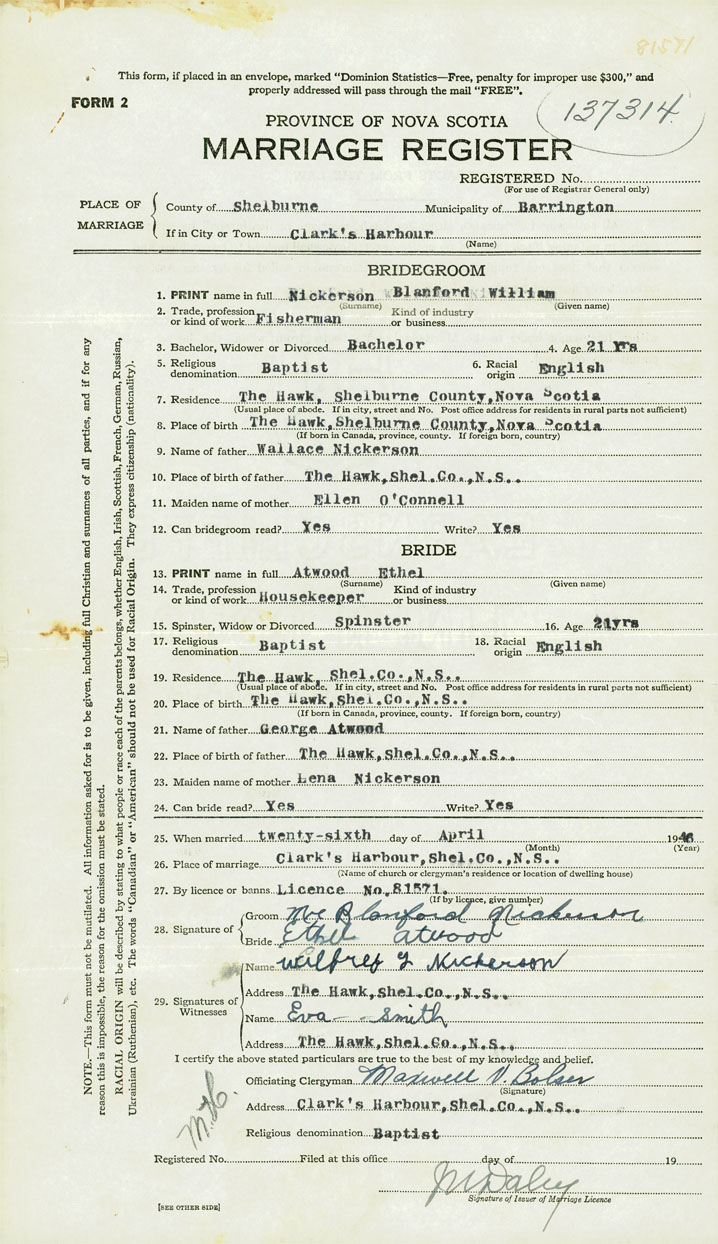 81571
This form, if placed in an envelope, marked "Dominion Statistics—Free, penalty for improper use $300," and
properly addressed will pass through the mail "FREE".
FORM 2
137314
PROVINCE OF NOVA SCOTIA
MARRIAGE REGISTER
REGISTERED No.
(For use of Registrar General only)
PLACE OF MARRIAGE
County of Shelburne Municipality of Barrington
If in City or Town Clark's Harbour
(Name)
BRIDEGROOM
1. PRINT name in full Nickerson Blanford William
(Surname) (Given name)
2. Trade, profession or kind of work Fisherman Kind of industry or business
3. Bachelor, Widower or Divorced Bachelor 4. Age 21 Yrs
5. Religious denomination Baptist 6. Racial origin English
7. Residence The Hawk, Shelburne County,Nova Scotia
(Usual place of abode. If in city, street and No. Post office address for residents in rural parts not sufficient)
8. Place of birth The Hawk,Shelburne County,Nova Scotia
(If born in Canada, province, county. If foreign born, country)
9. Name of father Wallace Nickerson
10. Place of birth of father The Hawk,Shel.Co.,N.S..
11. Maiden name of mother Ellen O'Connell
12. Can bridegroom read? Yes Write? Yes
BRIDE
13. PRINT name in full Atwood Ethel
(Surname) (Given name)
14. Trade, profession or kind of work Housekeeper Kind of industry or business
15. Spinster, Widow or Divorced Spinster 16. Age 21yrs
17. Religious denomination Baptist 18. Racial origin English
19. Residence The Hawk, Shel.Co.,N.S..
(Usual place of abode. If in city, street and No. Post office address for residents in rural parts not sufficient)
20. Place of birth The Hawk,Shel.Co.,N.S..
(If born in Canada, province, county. If foreign born, country)
21. Name of father George Atwood
22. Place of birth of father The Hawk,Shel.Co.,N.S..
23. Maiden name of mother Lena Nickerson
24. Can bride read? Yes Write? Yes
25. When married twenty-sixth day of April 1946
(Month) (Year)
26. Place of marriage Clark's Harbour,Shel.Co.,N.S..
(Name of church or clergyman's residence or location of dwelling house)
27. By licence or banns Licence No.81571.
(If by licence, give number)
28. Signature of
Groom Blanford Nickerson
Bride Ethel atwood
29. Signatures of Witnesses
Name Nickerson
Address The Hawk,Shel.Co.,N.S..
Name Eva Smith
Address The Hawk,Shel.Co.,N.S..
I certify the above stated particulars are true to the best of my knowledge and belief.
Officiating Clergyman Maxwell V. Bolser
(Signature)
Address Clark's Harbour,Shel.Co.,N.S..
Religious denomination Baptist
Registered No. Filed at this office day of 19
Signature of Issuer of Marriage Licence
[SEE OTHER SIDE]
NOTE.—This form must not be mutilated. All information asked for is to be given, including full Christian and surnames of all parties, and if for any
reason this is impossible, the reason for the omission must be stated.
RACIAL ORIGIN will be described by stating to what people or race each of the parents belongs, whether English, Irish, Scottish, French, German, Russian,
Ukrainian (Ruthenian), etc. The words "Canadian" or "American" should not be used for Racial Origin. They express citizenship (nationality).